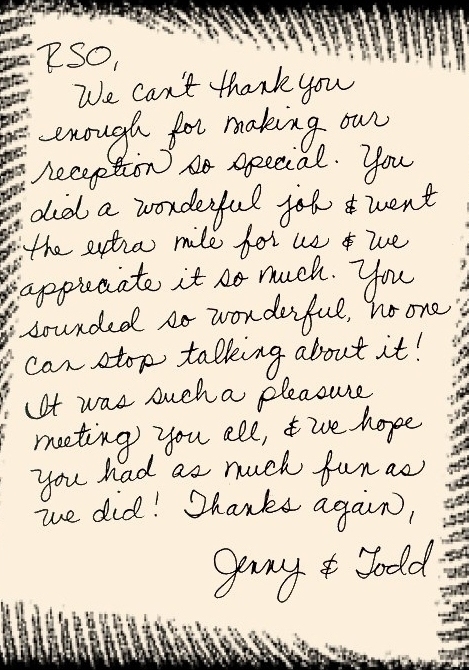 RSO,
We can't thank you
enough for making our
reception so special. You
did a wonderful job & went
the extra mile for us & we
appreciate it so much. You
sounded so wonderful, no one
can stop talking about it!
It was such a pleasure
meeting you all, & we hope
you had as much fun as
we did! Thanks again,
Jenny & Todd